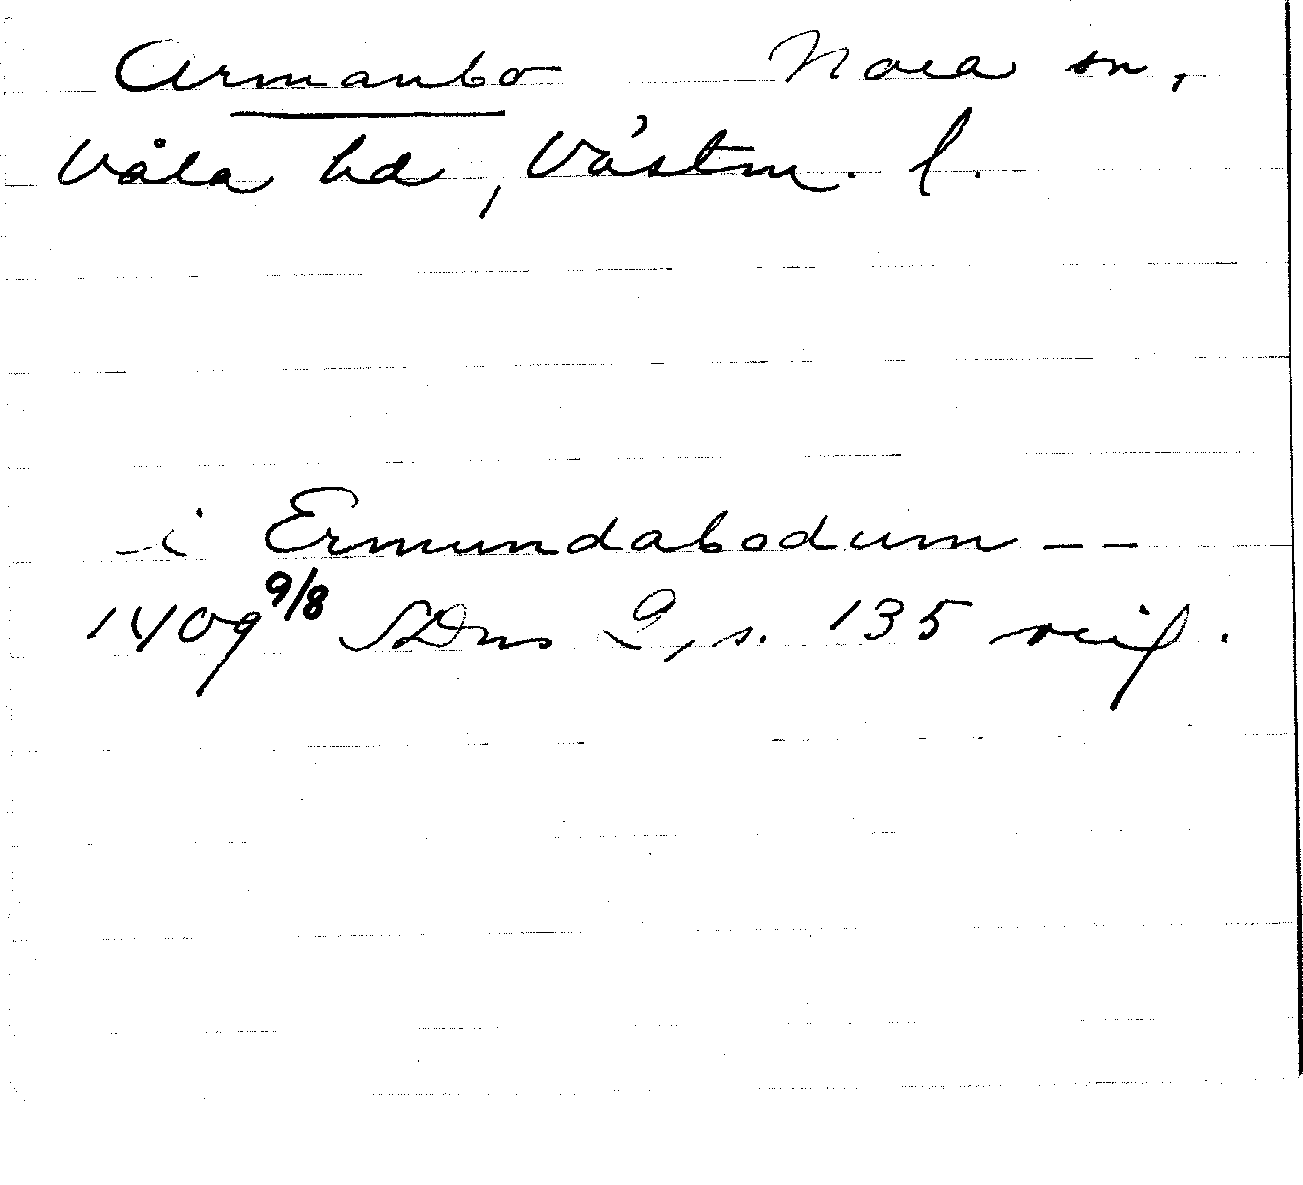 Armanbo Nora sn,
Våla hd, Västm. l.
- i Ermundabodum - -
1409 9/8 SDns 2, s. 135